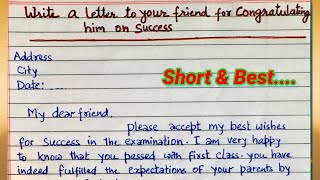 Write a letter to your friend for Congratulating
him on Success
Address
City
Date: ......
Short & Best....
My dear friend.
please accept my best wishes
for success in the examination. I am very happy
to know that you passed with first class. you have
indeed fulfilled the expectations of your parents by